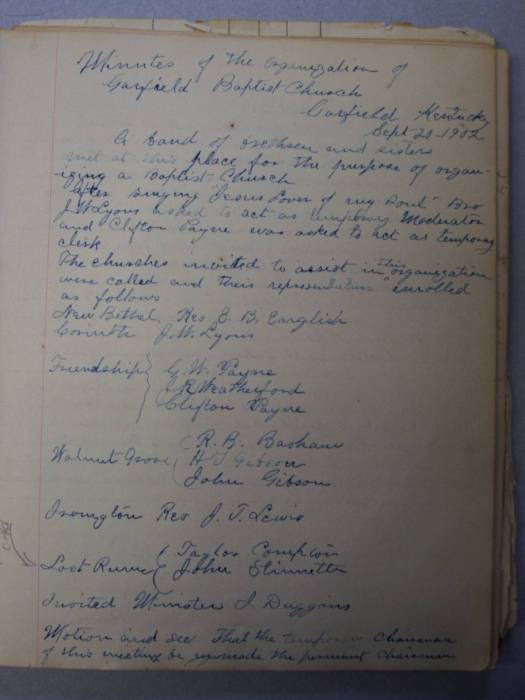 Minutes of the Organization of
Garfield Baptist Church
Garfield Kentucky
Sept 20 - 1902
A band of brethren and sisters
met at this place for the purpose of organ-
izing a Baptist Church
After singing "Jesus Lover of my Soul" Bro
J. W. Lyons asked to act as temporary Moderator
and Clifton Payne was asked to act as temporary
clerk
The churches invited to assist in this organization
were called and their representatives enrolled
as follows
New Bethel, Rev E. B. English
Corinth J. W. Lyons
Friendship G. W. Payne
J. R. Weatherford
Clifton Payne
R. B. Basham
Walnut Grove H T Gibson
John Gibson
Irvington Rev J. T. Lewis
Taylor Compton
Lost Run John Stinnett
Invited Minister I. Duggins
Motion and sec That the temporary Chairman
of this meeting be made the permanent Chairman